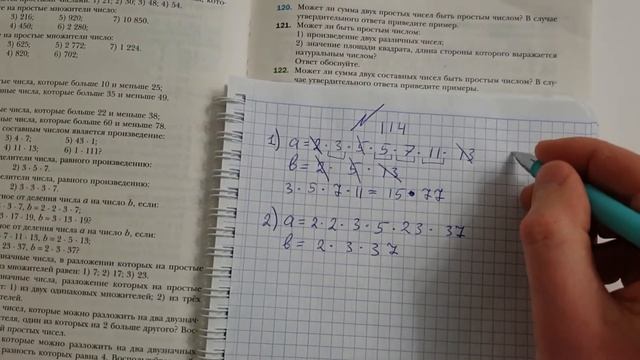 3) 216; 5) 920; 7) 10 850.
4) 450; 6) 2 280;
на простые множители число:
3) 625; 5) 2 772; 7) 1 224.
4) 820; 6) 702;
числа, которые больше 10 и меньше 25;
числа, которые больше 35 и меньше 49.
которые больше 22 и меньше 38;
числа, которые больше 60 и меньше 78.
составным числом является произведение:
3) 4 · 7; 5) 43 · 1;
4) 11 · 13; 6) 1 · 111?
делители числа, равного произведению:
2) 3 · 5 · 7.
делители числа, равного произведению:
2) 3 · 3 · 3 · 7.
от деления числа a на число b, если:
3 · 7, b = 2 · 2 · 3 · 7;
17 · 19, b = 3 · 13 · 19?
от деления числа a на число b, если:
7 · 11 · 13, b = 2 · 5 · 13;
23 · 37, b = 2 · 3 · 37?
значные числа, в разложении которых на простые
из множителей равен: 1) 7; 2) 17; 3) 23.
значные числа, разложение которых на простые
1) из двух одинаковых множителей; 2) из трёх
чисел, которые можно разложить на два двузнач-
один из которых на 2 больше другого?
простых чисел.
которые можно разложить на два двузначных
разность которых равна 4.
120. Может ли сумма двух простых чисел быть простым числом? В случае
утвердительного ответа приведите пример.
121. Может ли быть простым числом:
1) произведение двух различных чисел;
2) значение площади квадрата, длина стороны которого выражается
натуральным числом?
Ответ обоснуйте.
122. Может ли сумма двух составных чисел быть простым числом? В слу-
чае утвердительного ответа приведите примеры.
№ 114
1) a = 2 · 3 · 5 · 5 · 7 · 11 · 13
b = 2 · 5 · 13
3 · 5 · 7 · 11 = 15 · 77
2) a = 2 · 2 · 3 · 5 · 23 · 37
b = 2 · 3 · 37